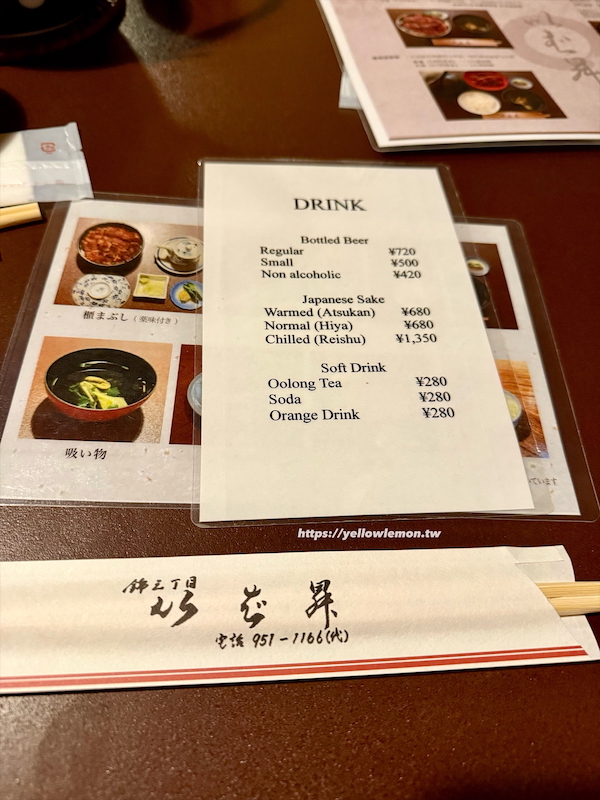 む
昇
DRINK
Bottled Beer
Regular ¥720
Small ¥500
Non alcoholic ¥420
Japanese Sake
Warmed (Atsukan) ¥680
Normal (Hiya) ¥680
Chilled (Reishu) ¥1,350
Soft Drink
Oolong Tea ¥280
Soda ¥280
Orange Drink ¥280
櫃まぶし（薬味付き）
吸い物
ています
https://yellowlemon.tw
錦三丁目
いば昇
電話 951-1166(代)